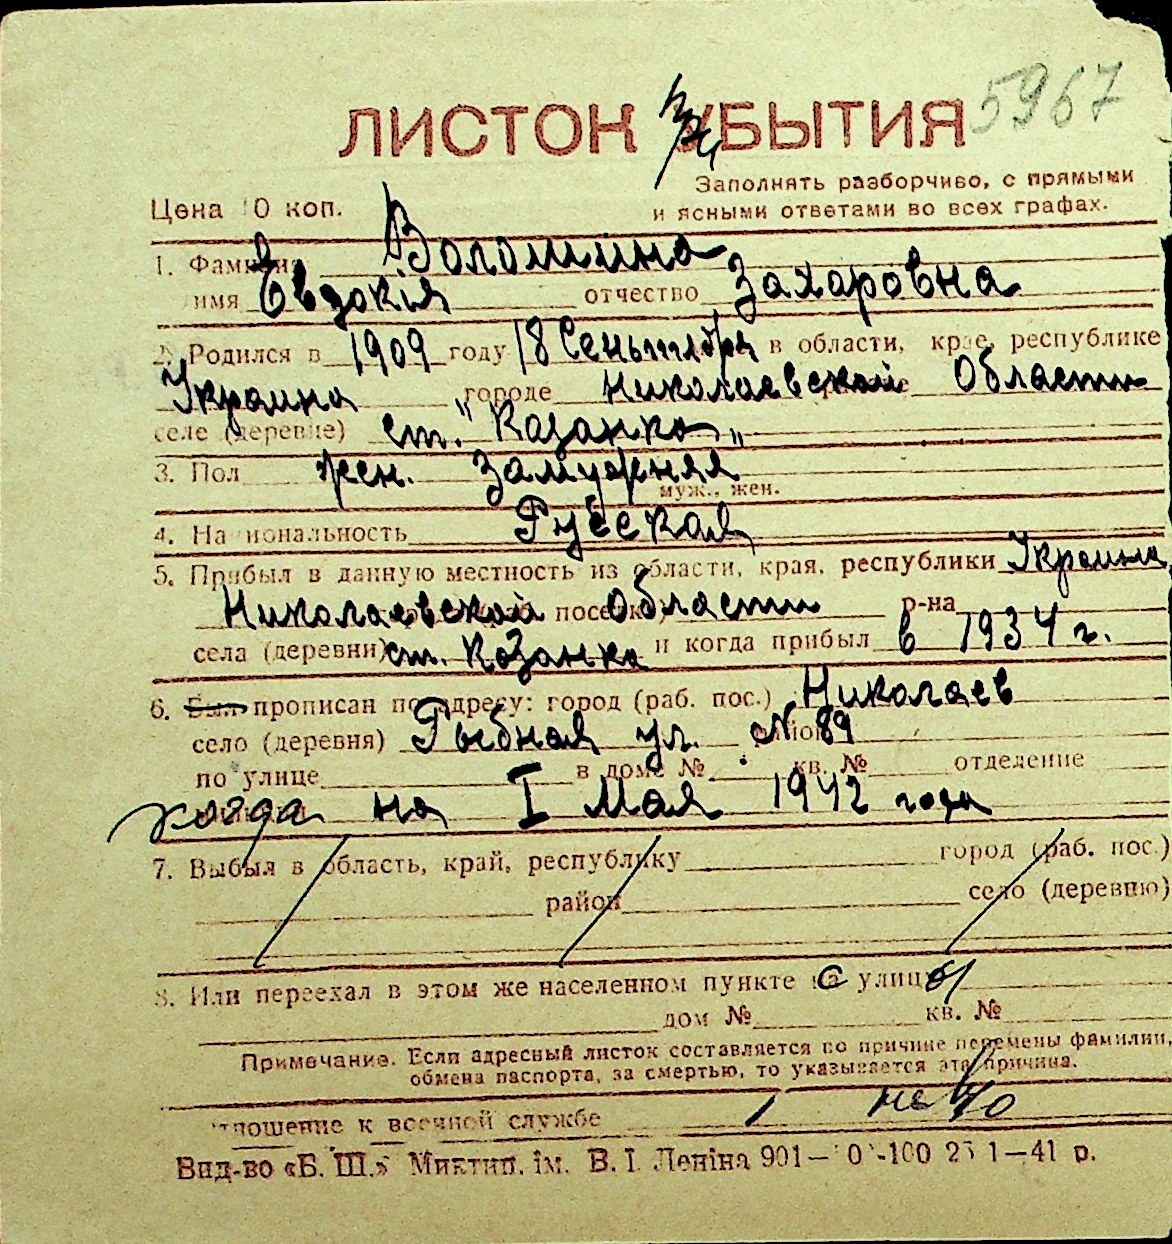 5967
ЛИСТОК УБЫТИЯ
Заполнять разборчиво, с прямыми
Цена 10 коп. и ясными ответами во всех графах.
1. Фамилия Волошина
имя Евдокія отчество Захаровна
2. Родился в 1909 году 18 Сеньтября в области, крае, республике
Украина городе Николаевской Области
селе (деревне) ст. "Казанка"
3. Пол жен. Замужняя
муж., жен.
4. Национальность Русская
5. Прибыл в данную местность из области, края, республики Украина
Николаевской поселка) Области р-на
села (деревни) ст. Казанка и когда прибыл в 1934 г.
6. Был прописан по адресу: город (раб. пос.) Николаев
село (деревня) Рыбная ул. район N 89
по улице в доме № кв. № отделение
когда на I Мая 1942 года
7. Выбыл в область, край, республику город (раб. пос.)
район село (деревню)
8. Или переехал в этом же населенном пункте с улицы
дом № кв. №
Примечание. Если адресный листок составляется по причине перемены фамилии,
обмена паспорта, за смертью, то указывается эта причина.
Отношение к военной службе
Вид-во «Б. Ш.» Миктип. ім. В. І. Леніна 901— 100 1—41 р.